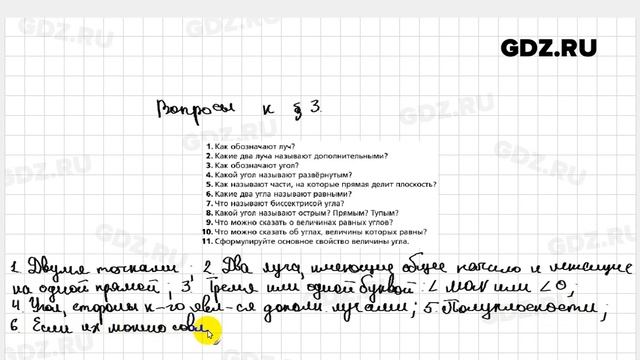 GDZ.RU
Вопросы к § 3.
1. Как обозначают луч?
2. Какие два луча называют дополнительными?
3. Как обозначают угол?
4. Какой угол называют развёрнутым?
5. Как называют части, на которые прямая делит плоскость?
6. Какие два угла называют равными?
7. Что называют биссектрисой угла?
8. Какой угол называют острым? Прямым? Тупым?
9. Что можно сказать о величинах равных углов?
10. Что можно сказать об углах, величины которых равны?
11. Сформулируйте основное свойство величины угла.
1. Двумя точками; 2. Два луча, имеющие общее начало и лежащие
на одной прямой; 3. Тремя или одной буквой: ∠ МОК или ∠ О;
4. Угол, стороны к-го явл-ся дополн. лучами; 5. Полуплоскости;
6. Если их можно совм